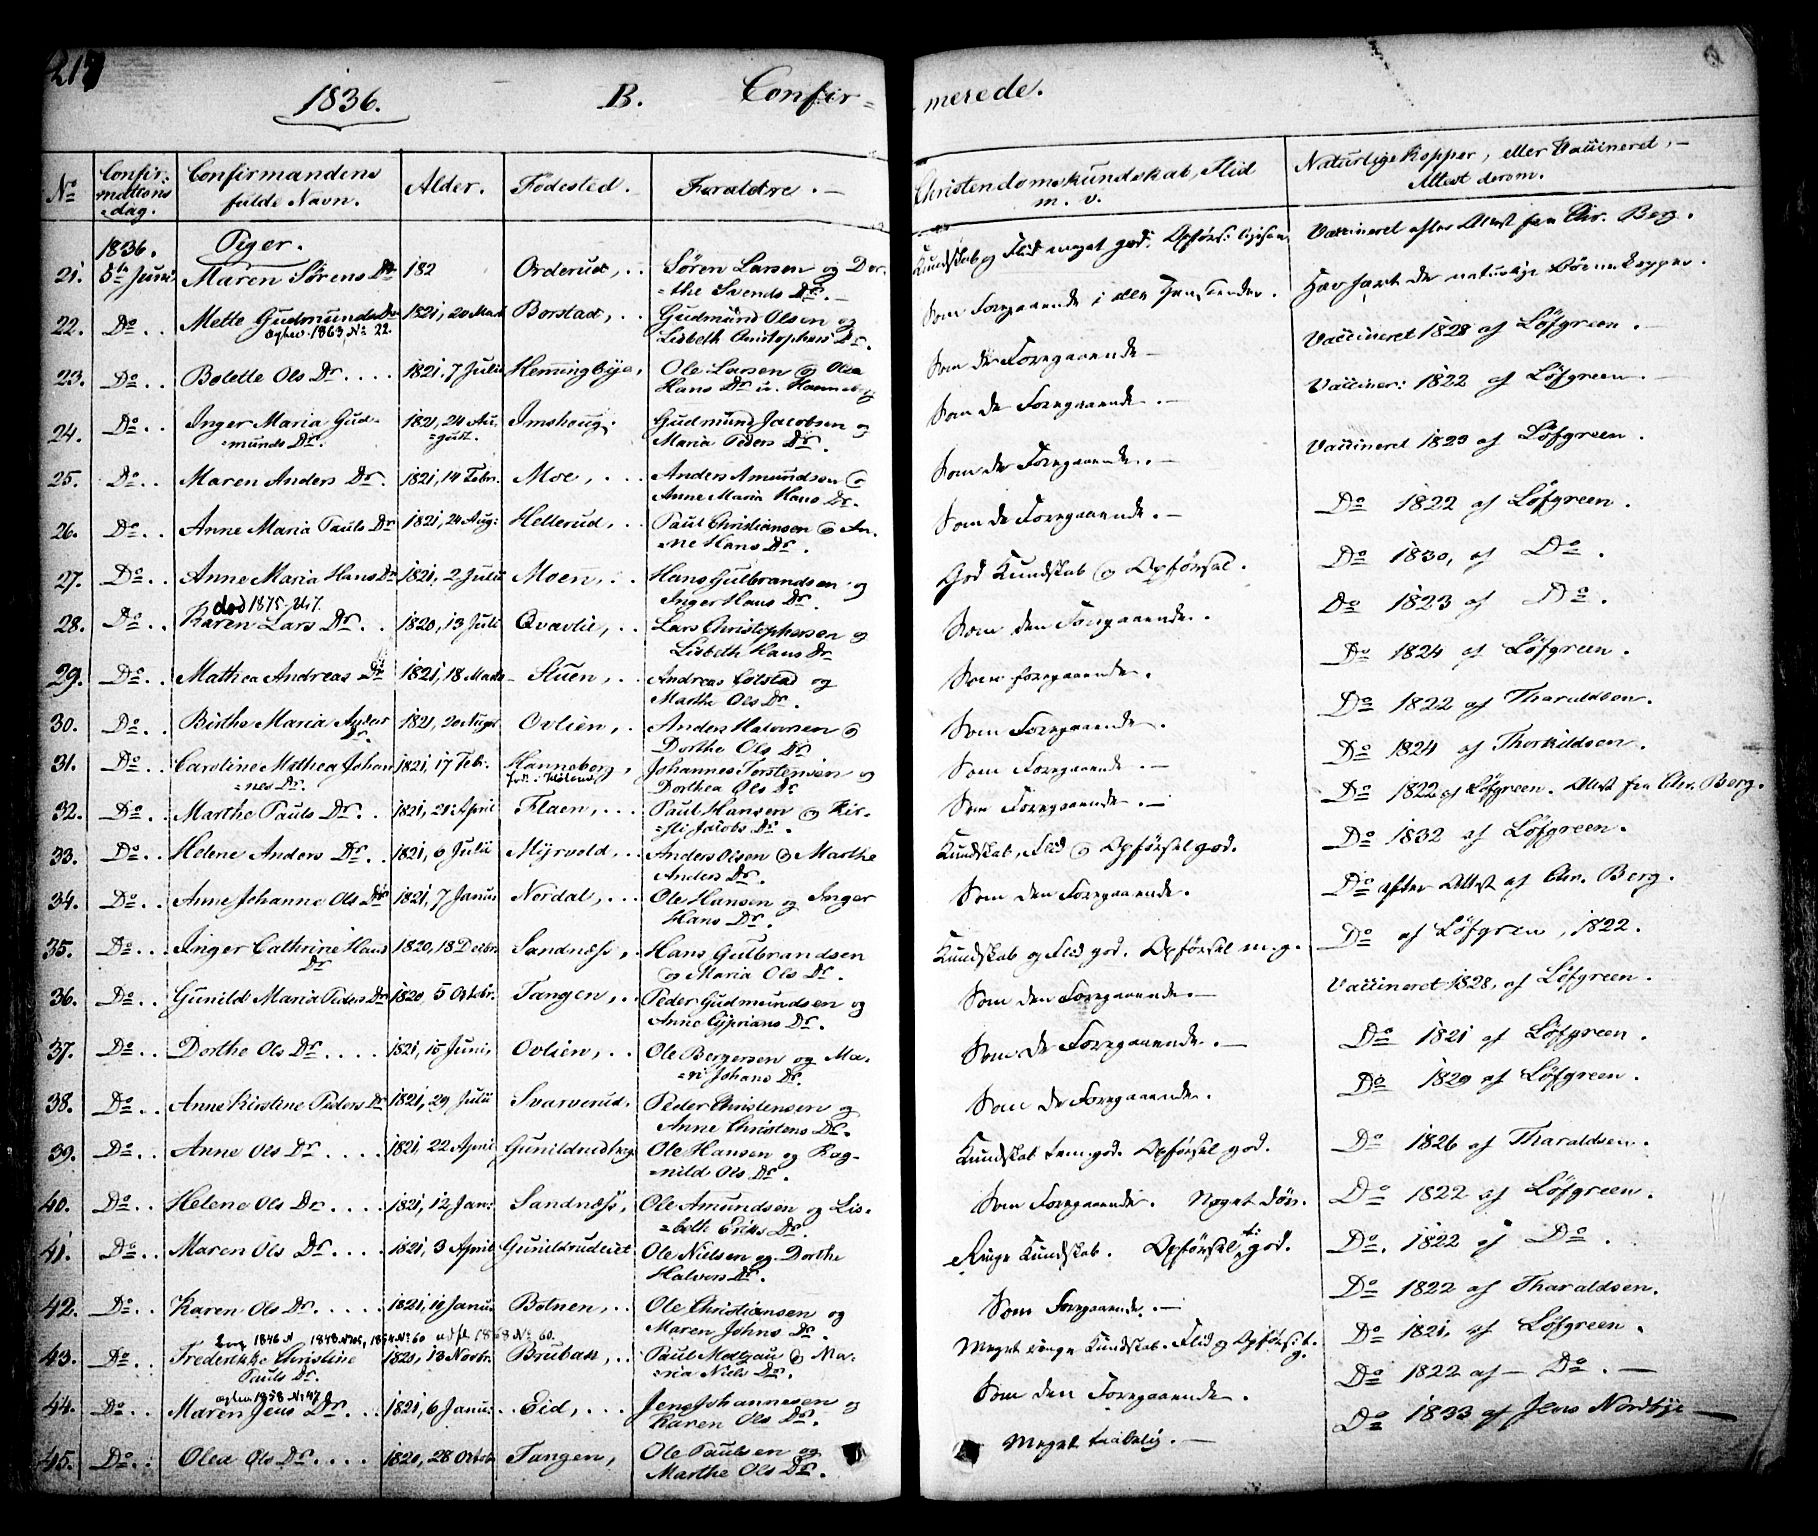 217
1836. B. Confir- merede.
No Confirmations dag. Confirmandens fulde Navn. Alder. Födested. Foraldre. Christendomskundskab, Flid m. v. Naturlige Kopper, eller Vaccineret, Attest derom.
1836. Piger.
21. 5te Juni Maren Sörens Dr 182 Orderud, .. Sören Larsen og Dor- Kundskab og Flid meget god. Vaccineret efter Attest fra Chr. Berg.
=the Svends Dr.
22. Do .. Mette Gudmunds Dr 1821, 20 Borstad, .. Gudmund Olsen og Som Foregaaende i alle Henseender. Har havt de naturlige Börnekopper.
1863, No 22. Lisbeth Christophers Dr.
23. Do .. Bolette Ols Dr .... 1821, 7 Julii Hemingbye, Ole Larsen og Olea Som de Foregaaende Vaccineret 1828 af Löfgreen.
Hans Dr
24. Do .. Inger Maria Gud- 1821, 24 Au- Imshoug. Gudmund Jacobsen og Som de Foregaaende. Vacciner: 1822 af Löfgreen.
=munds Dr. =gust. Maria Peders Dr.
25. Do .. Maren Anders Dr. 1821, 14 Febr. Moe, ... Anders Amundsen og Som de Foregaaende. Vaccineret 1823 af Löfgreen.
Anne Maria Hans Dr.
26. Do .. Anne Maria Pauls Dr 1821, 24 Aug: Hellerud, .. Paul Christiansen og An- Som de Foregaaende. Do 1822 af Löfgreen.
ne Hans Dr.
27. Do .. Anne Maria Hans Dr 1821, 2 Julii Moen, .. Hans Gulbrandsen og God Kundskab og Opförsel. Do 1830, af Do.
död 1875 Inger Hans Dr.
28. Do .. Karen Lars Dr .. 1820, 13 Julii Qvavlie, .. Lars Christophersen og Som den Foregaaende. Do 1823 af Do.
Lisbeth Hans Dr
29. Do .. Mathea Andreas Dr 1821, 18 Sluen, .. Andreas Colstad og Som foregaaende. Do 1824 af Löfgreen.
Marthe Ols Dr.
30. Do .. Birthe Maria Anders 1821, 20 Augst Ovlien, .. Anders Halvorsen og Som Foregaaende. Do 1822 af Tharaldsen.
Dr. Dorthe Ols Dr
31. Do .. Caroline Mathea Johan 1821, 17 Febr. Hanneborg, Johannes Torstensen og Som Foregaaende. Do 1824 af Thorkildsen.
=nes Dr. Dorthea Ols Dr
32. Do .. Marthe Pauls Dr .. 1821, 21 April Flaen, ... Paul Hansen og Kir- Som Foregaaende. Do 1822 af Löfgreen. Attest fra Chr. Berg.
=sti Jacobs Dr.
33. Do .. Helene Anders Dr .. 1821, 6 Julii Myrvold, .. Anders Olsen og Marthe Kundskab, Flid og Opförsel god. Do 1832 af Löfgreen.
Anders Dr.
34. Do .. Anne Johanne Ols Dr 1821, 7 Janus Nordal, ... Ole Hansen og Inger Som den Foregaaende. Do efter Attest af Chr. Berg.
Hans Dr.
35. Do .. Inger Cathrine Hans 1820, 18 Decbr. Sandnæss, .. Hans Gulbrandsen Kundskab og Flid god. Opförsel m.g. Do af Löfgren, 1822.
Dr og Maria Ols Dr.
36. Do .. Gunild Maria Peders Dr 1820 5 Octobr. Tangen, .. Peder Gudmundsen og Som den Foregaaende. Vaccineret 1828, af Löfgreen.
Anne Cyprians Dr.
37. Do .. Dorthe Ols Dr .... 1821, 15 Juni, Ovlien, .. Ole Bergersen og Ma- Som de Foregaaende. Do 1821 af Löfgreen.
=ri Johans Dr.
38. Do .. Anne Kirstine Peders Dr 1821, 29 Julii Svarverud. Peder Christensen og Som de Foregaaende. Do 1829 af Löfgreen.
Anne Christens Dr.
39. Do .. Anne Ols Dr .... 1821, 22 April Ole Hansen og Rag- Kundskab tem. god. Opförsel god. Do 1826 af Tharaldsen.
=nild Ols Dr.
40. Do .. Helene Ols Dr .... 1821, 12 Jan: Sandnæss, Ole Amundsen og Lis- Som Foregaaende. Noget Döv. Do 1822 af Löfgreen.
=beth Eriks Dr.
41. Do .. Maren Ols Dr ... 1821, 3 April Gunildrudeiet Ole Nielsen og Dorthe Ringe Kundskab. Opförsel god. Do. 1822 af Do.
Halvors Dr.
42. Do .. Karen Ols Dr. .... 1821, 10 Janus Botnen, .. Ole Christiansen og Som Foregaaende. Do 1822 af Tharaldsen.
1846 1848 1854 No 60 1868 No 60. Maren Johns Dr.
43. Do .. Frederikke Christine 1820, 13 Novbr. Brubak, .. Paul Moltzau og Ma- Meget ringe Kundskab. Flid og Opförs: t. g. Do 1821, af Löfgreen.
Pauls Dr. =ria Niels Dr.
1858 No 47
44. Do .. Maren Jens Dr ... 1821, 6 Janus .. Eid, ... Jens Johannesen og Som den Foregaaende. Do 1822 af Do.
Karen Ols Dr.
45. Do .. Olea Ols Dr .... 1820, 28 Octob Tangen, Ole Paulsen og Meget taabelig. Do 1833 af Jens Nordbye
Marthe Ols Dr.